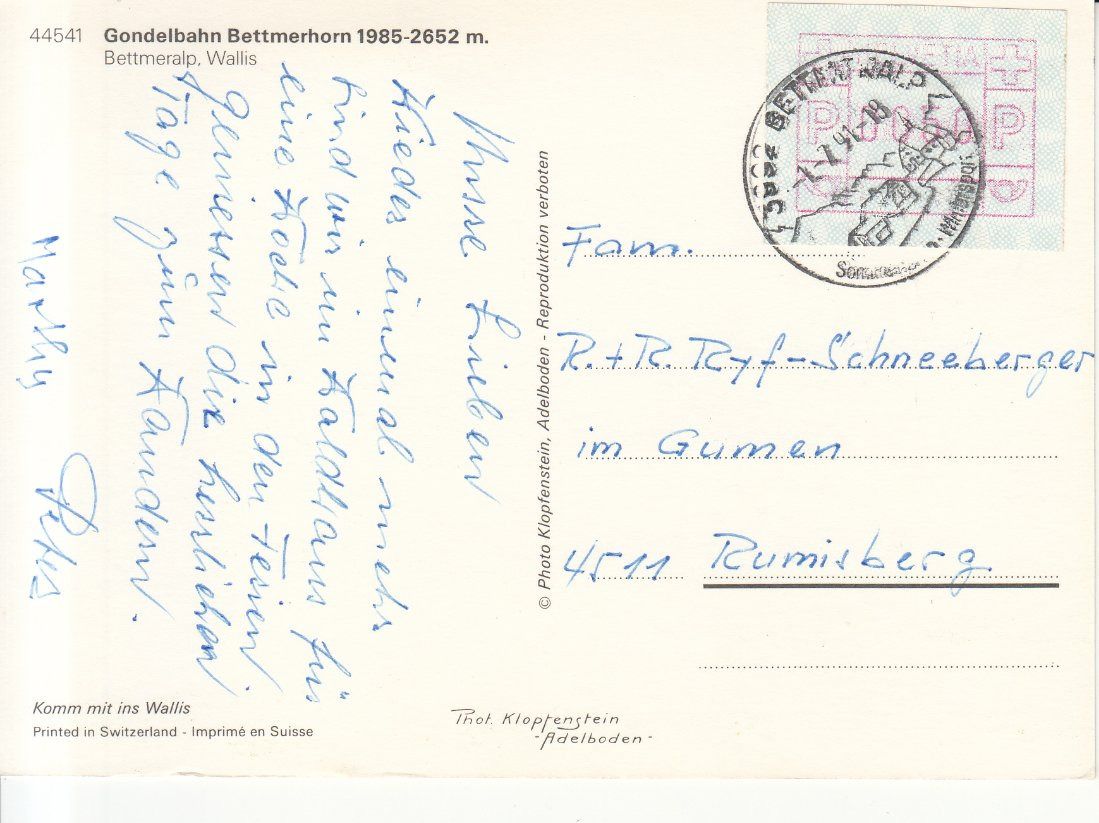 44541 Gondelbahn Bettmerhorn 1985-2652 m.
Bettmeralp, Wallis
Meine Lieben
Wieder einmal mehr
sind wir im Waldhaus für
eine Woche in den Ferien.
Geniessen die herrlichen
Tage zum Wandern.
Marthy Peter
© Photo Klopfenstein, Adelboden - Reproduktion verboten
HELVETIA
BETTMERALP
-1-7.91-18
Fam.
R.+R. Ryf-Schneeberger
im Gumen
4511 Rumisberg
Komm mit ins Wallis
Printed in Switzerland - Imprimé en Suisse
Phot. Klopfenstein
-Adelboden-